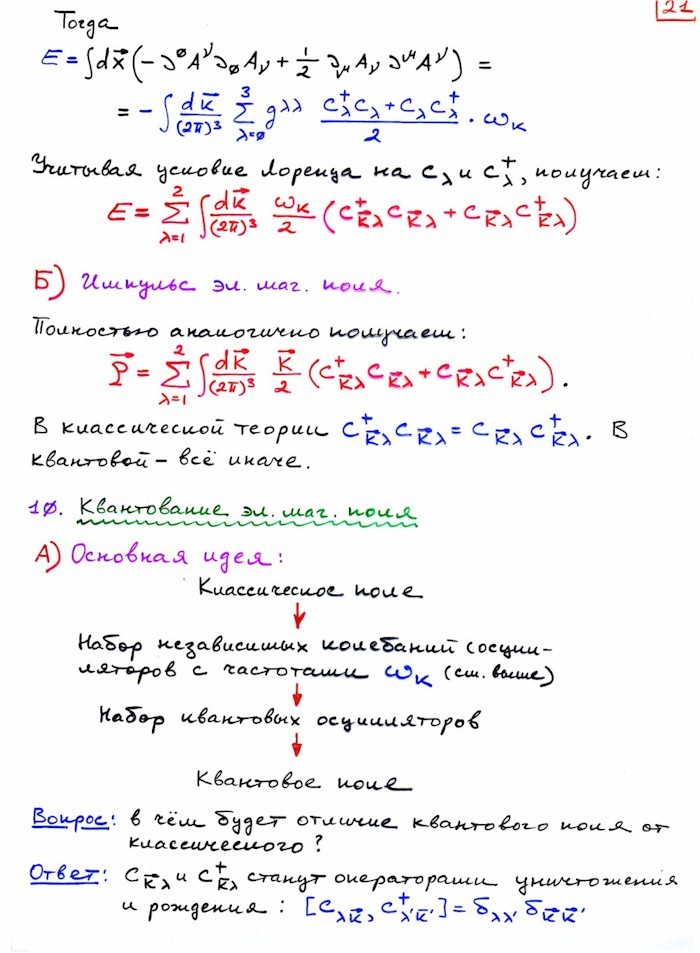 21
Тогда
E = ∫dx⃗ (− ∂⁰A^ν ∂₀A_ν + 1/2 ∂_μ A_ν ∂^μ A^ν) =
= − ∫ dk⃗/(2π)³ Σ_{λ=0}^{3} g^{λλ} (c⁺_λ c_λ + c_λ c⁺_λ)/2 · ω_k
Учитывая условие Лоренца на c_λ и c⁺_λ, получаем:
E = Σ_{λ=1}^{2} ∫ dk⃗/(2π)³ ω_k/2 (c⁺_{k⃗λ} c_{k⃗λ} + c_{k⃗λ} c⁺_{k⃗λ})
Б) Импульс эл. маг. поля.
Полностью аналогично получаем:
P⃗ = Σ_{λ=1}^{2} ∫ dk⃗/(2π)³ k⃗/2 (c⁺_{k⃗λ} c_{k⃗λ} + c_{k⃗λ} c⁺_{k⃗λ}).
В классической теории c⁺_{k⃗λ} c_{k⃗λ} = c_{k⃗λ} c⁺_{k⃗λ}. В
квантовой – всё иначе.
10. Квантование эл. маг. поля
А) Основная идея:
Классическое поле
↓
Набор независимых колебаний (осцил-
ляторов с частотами ω_k (см. выше)
↓
Набор квантовых осцилляторов
↓
Квантовое поле
Вопрос: в чём будет отличие квантового поля от
классического?
Ответ: c_{k⃗λ} и c⁺_{k⃗λ} станут операторами уничтожения
и рождения: [c_{λk⃗}, c⁺_{λ′k⃗′}] = δ_{λλ′} δ_{k⃗k⃗′}